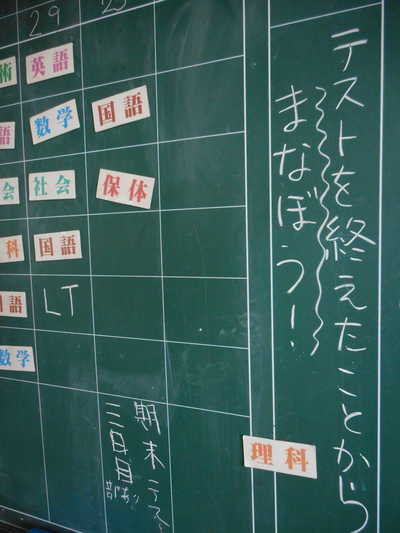 テストを終えたことから
まなぼう!
29
術
英語
語
数学
国語
会
社会
保体
科
国語
国語
LT
数学
期末テスト
三日目
部活あり
理科